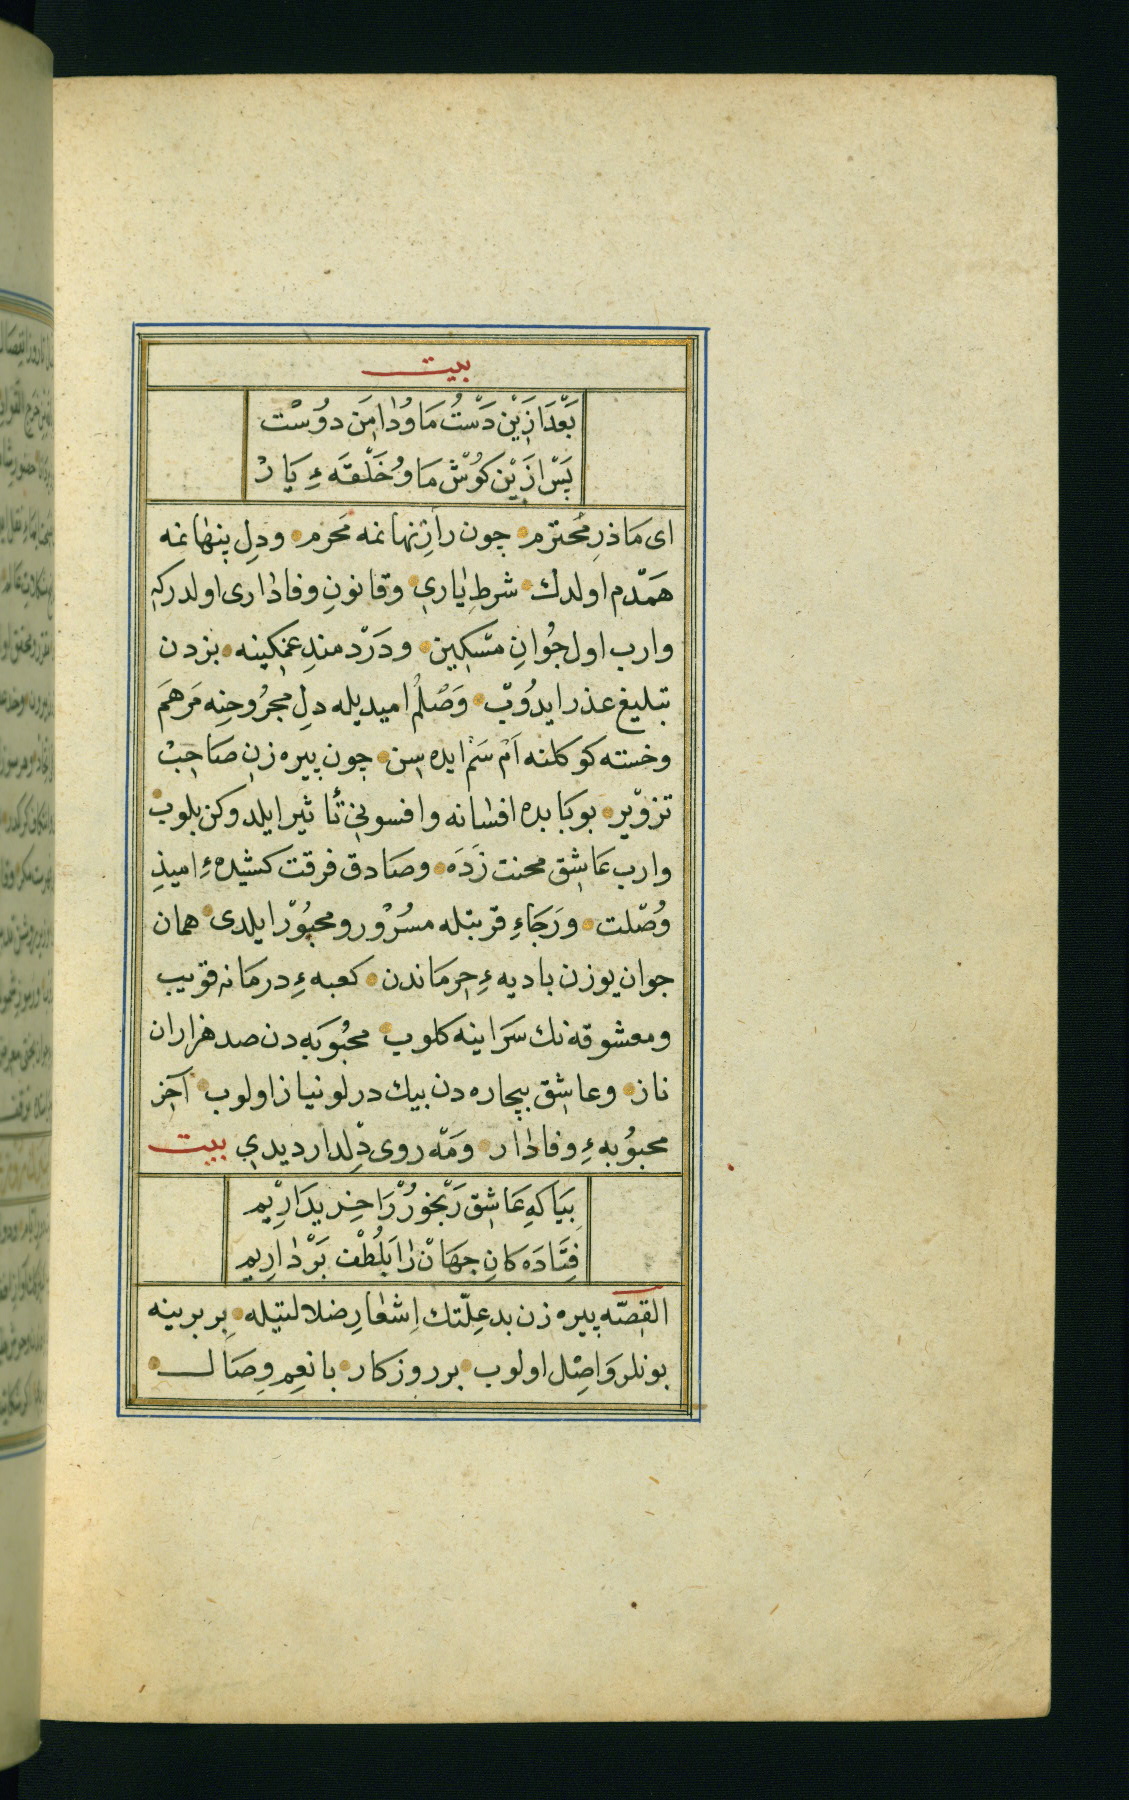 بيت
بَعْدَ ازَيْن دَسْتُ مَا وُدٰامَن دوُسْت
پَسْ ازَيْن كوُشْ مَا وُ حَلْقَهءِ يَارْ
اى مَاذرِ مُحترَم چون رازِ نهانمه مَحرم ودلِ پنهانمه
هَمْدم اولدك شرطِ يٰاري وقانونِ وفادٰارى اولدركه
وارب اول جُوانِ مسْكِين ودَرْدمندِ غمكينه بزدن
تبليغ عذر ايدُوبْ وَصْلُم اميديله دلِ مجرُوحِنه مَرهَم
وخسته كوكلنه اَمْ سَمْ ايده سِن چون پيره زنِ صَاحِبْ
تزوْير بو كَابده افسٰانه وافسونِى تأثير ايلدوكن بلوب
وارب عَاشِق محنت زَدَه وصَادق فرقت كشيدهءِ اميذِ
وُصْلت ورَجَاءِ قربتله مسْرُوْر ومحبُوْر ايلدى همان
جوان يوزن باديهءِ حِرماندن كعبهءِ درمانه قريب
ومعشوقه نك سَراينه كلوب محبُوبَه دن صد هزاران
ناز وعاشِق بيچاره دن بيك درلو نياز اولوب آخِر
محبوُبهءِ وفادٰار ومَهْ روى دِلدار ديدي بيت
بِيَا كهِ عَاشِق رَنْجوُرْ رَا خِريدَارِيم
فِتَادَه كانِ جِهَانْ رٰا بَلُطْف بَرْدٰارِيم
القِصّه پيره زن بد عِلّتك اِشعٰارِ ضلالتيله بِر برينه
بونلر وَاصِل اولوب بر روزكار با نعِم وِصَال